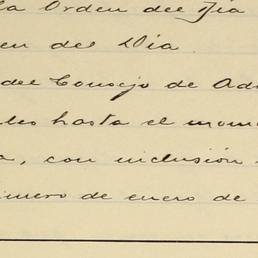 la Orden del Día
en del Dia
del Consejo de Ad
les hasta el mom
a, con inclusión
imero de enero de